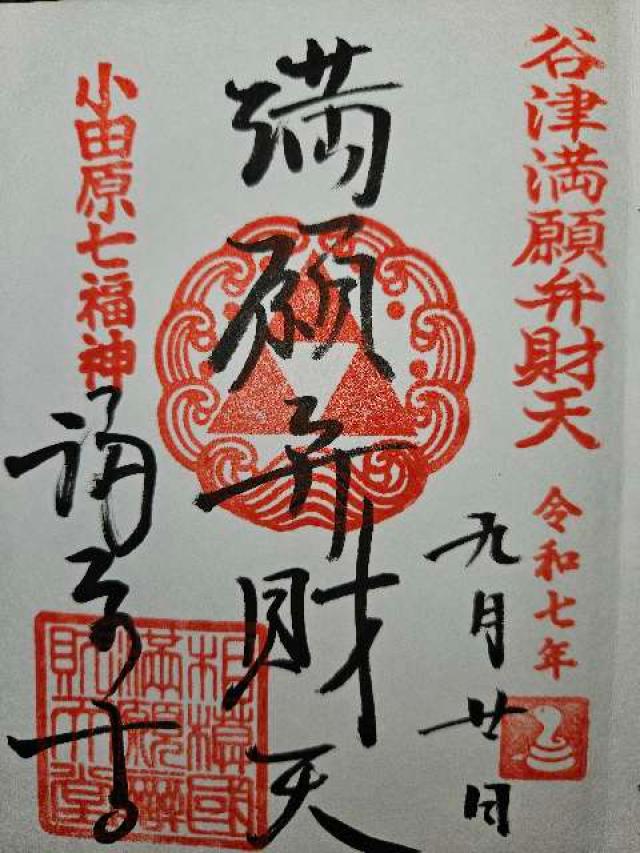 谷津満願弁財天
令和七年
九月廿日
満願弁財天
小田原七福神
福泉寺
相模國
満願辨
財天堂